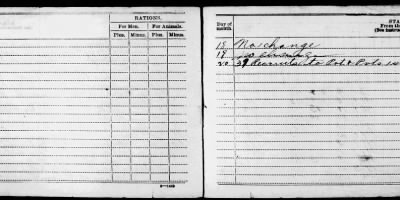 RATIONS.
For Men. For Animals.
Plus. Minus. Plus. Minus.
Day of month.
STA
From th
(See instruc
18 No change
19
20 39 Recruits to Pot & Pots is